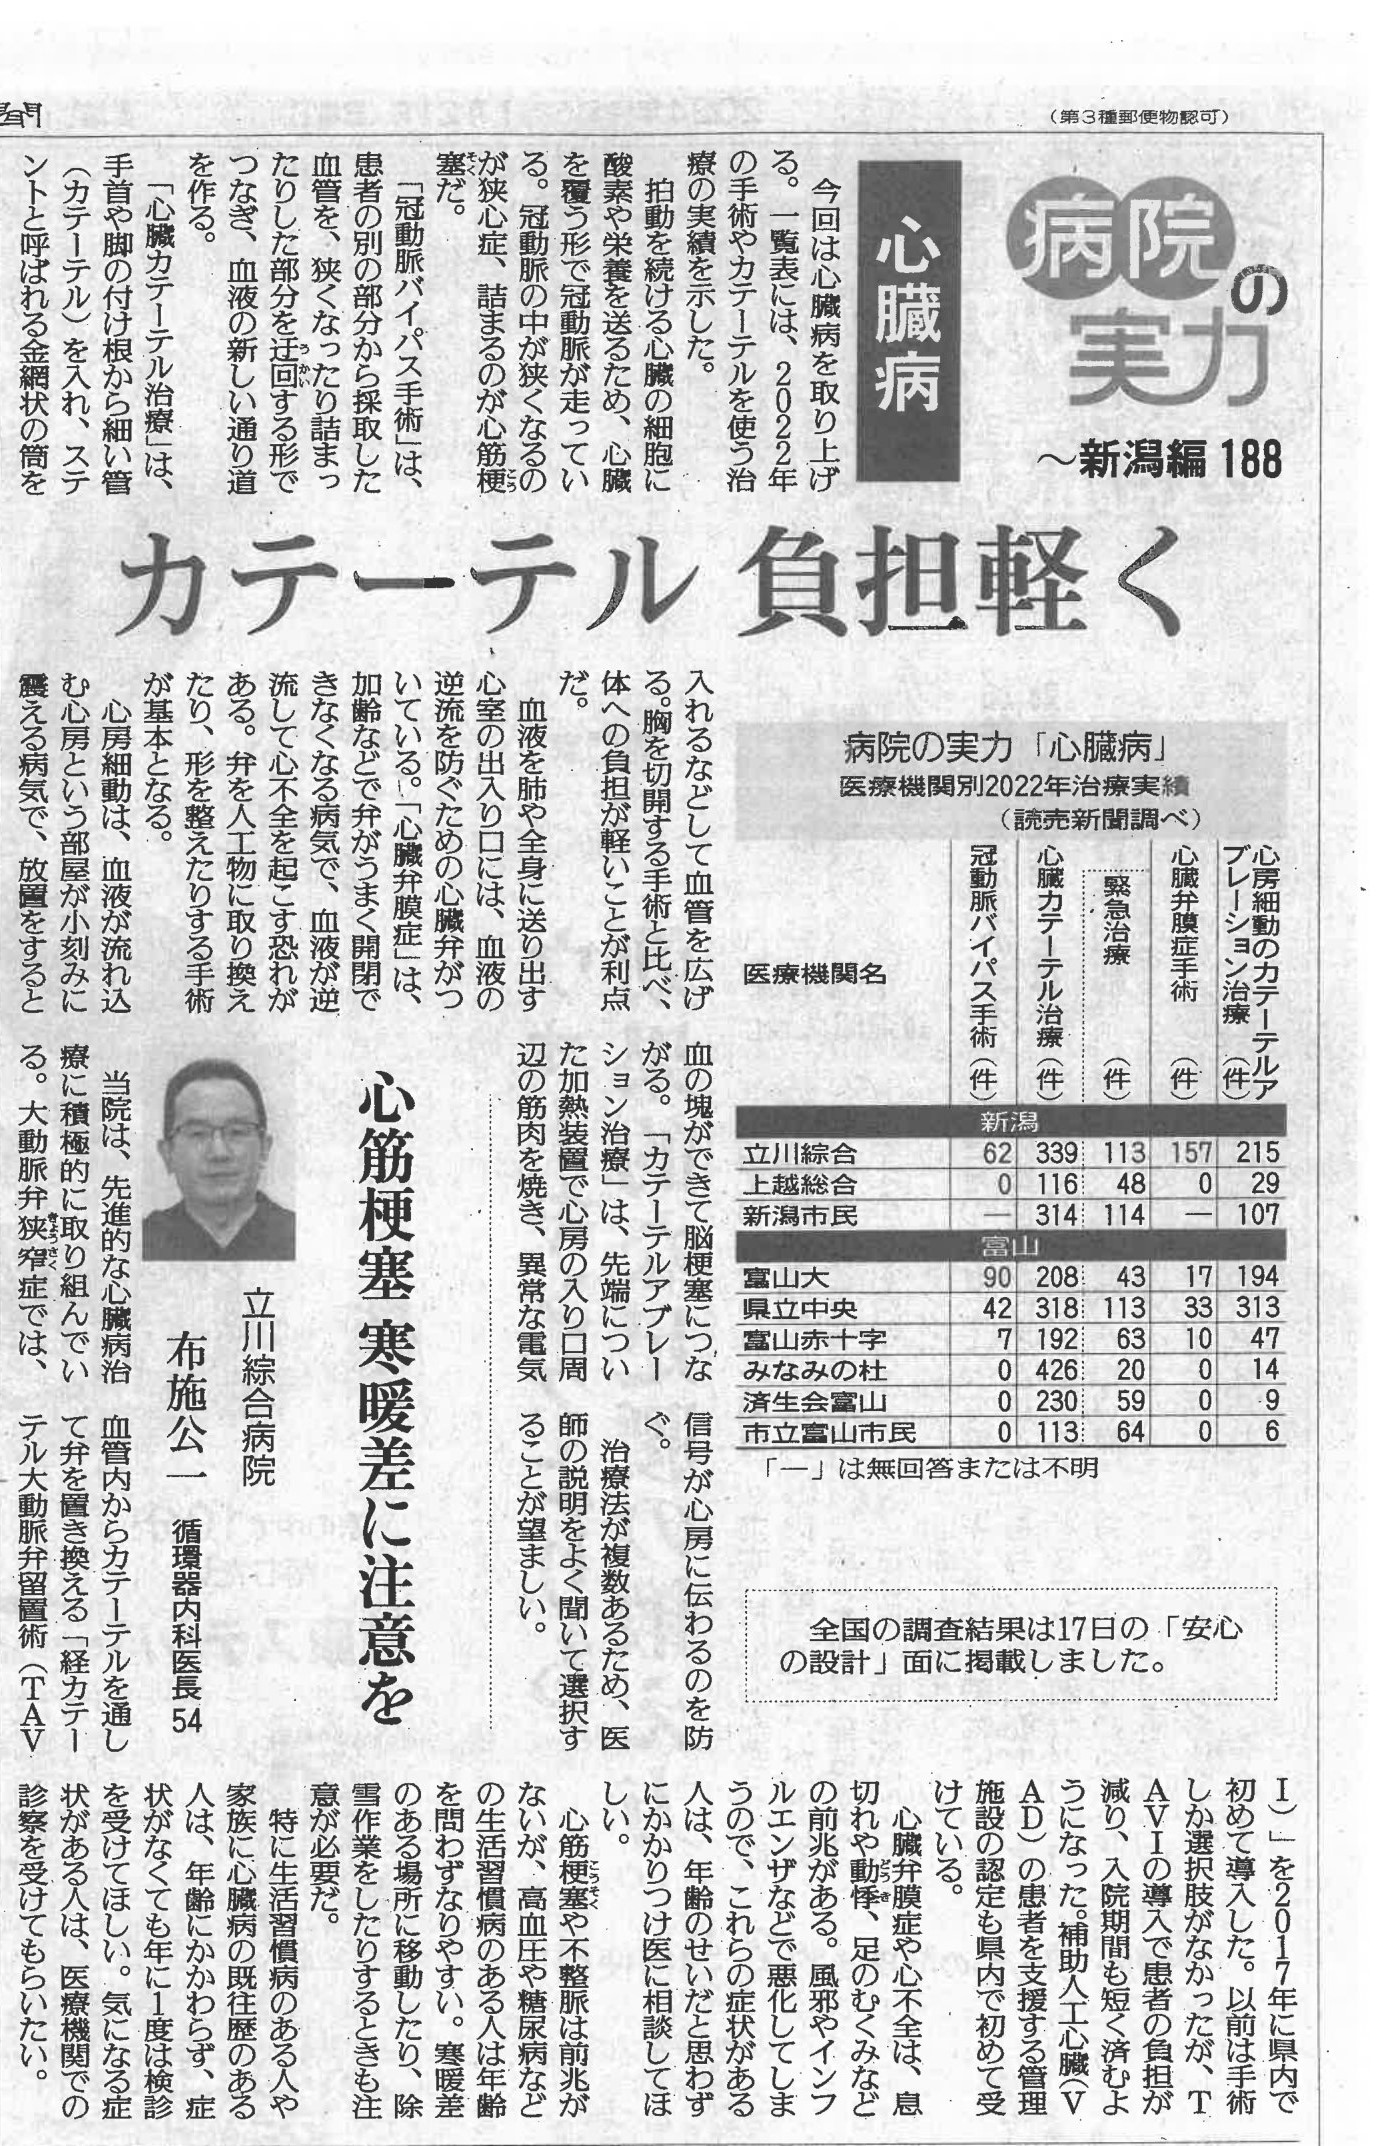 （第3種郵便物認可）
病院の
実力
～新潟編 188
心臓病
今回は心臓病を取り上げ
る。一覧表には、2022年
の手術やカテーテルを使う治
療の実績を示した。
拍動を続ける心臓の細胞に
酸素や栄養を送るため、心臓
を覆う形で冠動脈が走ってい
る。冠動脈の中が狭くなるの
が狭心症、詰まるのが心筋梗
塞だ。
「冠動脈バイパス手術」は、
患者の別の部分から採取した
血管を、狭くなったり詰まっ
たりした部分を迂回する形で
つなぎ、血液の新しい通り道
を作る。
「心臓カテーテル治療」は、
手首や脚の付け根から細い管
（カテーテル）を入れ、ステ
ントと呼ばれる金網状の筒を
カテーテル 負担軽く
入れるなどして血管を広げ
る。胸を切開する手術と比べ、
体への負担が軽いことが利点
だ。
血液を肺や全身に送り出す
心室の出入り口には、血液の
逆流を防ぐための心臓弁がつ
いている。「心臓弁膜症」は、
加齢などで弁がうまく開閉で
きなくなる病気で、血液が逆
流して心不全を起こす恐れが
ある。弁を人工物に取り換え
たり、形を整えたりする手術
が基本となる。
心房細動は、血液が流れ込
む心房という部屋が小刻みに
震える病気で、放置をすると
血の塊ができて脳梗塞につな
がる。「カテーテルアブレー
ション治療」は、先端につい
た加熱装置で心房の入り口周
辺の筋肉を焼き、異常な電気
信号が心房に伝わるのを防
ぐ。
治療法が複数あるため、医
師の説明をよく聞いて選択す
ることが望ましい。
病院の実力「心臓病」
医療機関別2022年治療実績
（読売新聞調べ）
医療機関名 冠動脈バイパス手術（件） 心臓カテーテル治療（件） 緊急治療（件） 心臓弁膜症手術（件） 心房細動のカテーテルアブレーション治療（件）
新潟
立川綜合 62 339 113 157 215
上越総合 0 116 48 0 29
新潟市民 ― 314 114 ― 107
富山
富山大 90 208 43 17 194
県立中央 42 318 113 33 313
富山赤十字 7 192 63 10 47
みなみの杜 0 426 20 0 14
済生会富山 0 230 59 0 9
市立富山市民 0 113 64 0 6
「―」は無回答または不明
全国の調査結果は17日の「安心
の設計」面に掲載しました。
心筋梗塞 寒暖差に注意を
立川綜合病院
布施公一 循環器内科医長 54
当院は、先進的な心臓病治
療に積極的に取り組んでい
る。大動脈弁狭窄症では、
血管内からカテーテルを通し
て弁を置き換える「経カテー
テル大動脈弁留置術（TAV
I）」を2017年に県内で
初めて導入した。以前は手術
しか選択肢がなかったが、T
AVIの導入で患者の負担が
減り、入院期間も短く済むよ
うになった。補助人工心臓（V
AD）の患者を支援する管理
施設の認定も県内で初めて受
けている。
心臓弁膜症や心不全は、息
切れや動悸、足のむくみなど
の前兆がある。風邪やインフ
ルエンザなどで悪化してしま
うので、これらの症状がある
人は、年齢のせいだと思わず
にかかりつけ医に相談してほ
しい。
心筋梗塞や不整脈は前兆が
ないが、高血圧や糖尿病など
の生活習慣病のある人は年齢
を問わずなりやすい。寒暖差
のある場所に移動したり、除
雪作業をしたりするときも注
意が必要だ。
特に生活習慣病のある人や
家族に心臓病の既往歴のある
人は、年齢にかかわらず、症
状がなくても年に1度は検診
を受けてほしい。気になる症
状がある人は、医療機関での
診察を受けてもらいたい。